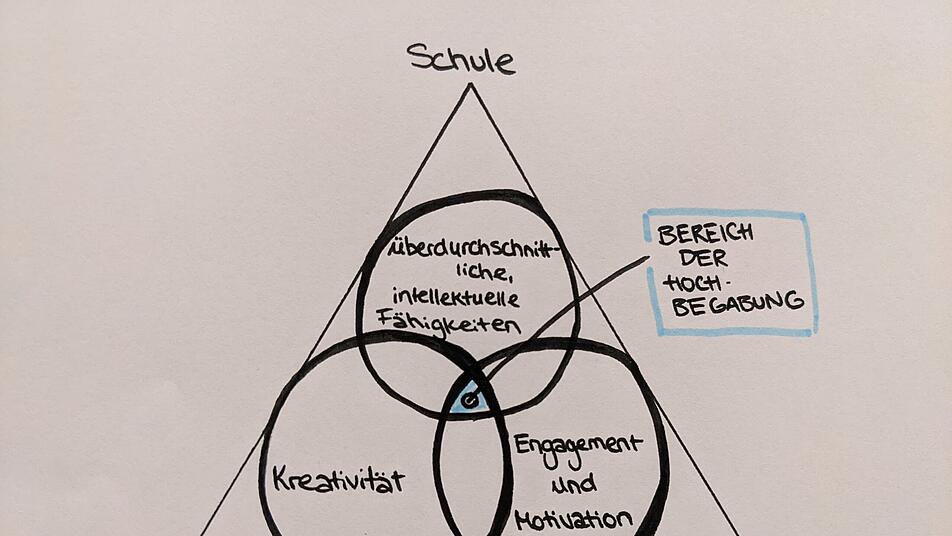 Schule
überdurchschnitt-
liche,
intellektuelle
Fähigkeiten
BEREICH
DER
HOCH-
BEGABUNG
Kreativität
Engagement
und
Motivation